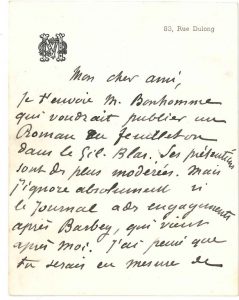 83, Rue Dulong
Mon cher ami,
je t'envoie M. Bonhomme
qui voudrait publier un
Roman en feuilleton
dans le Gil-Blas. Ses prétentions
sont des plus modérées. Mais
j'ignore absolument si
le Journal a des engagements
après Barbey, qui vient
après moi. J'ai pensé que
tu serais en mesure de